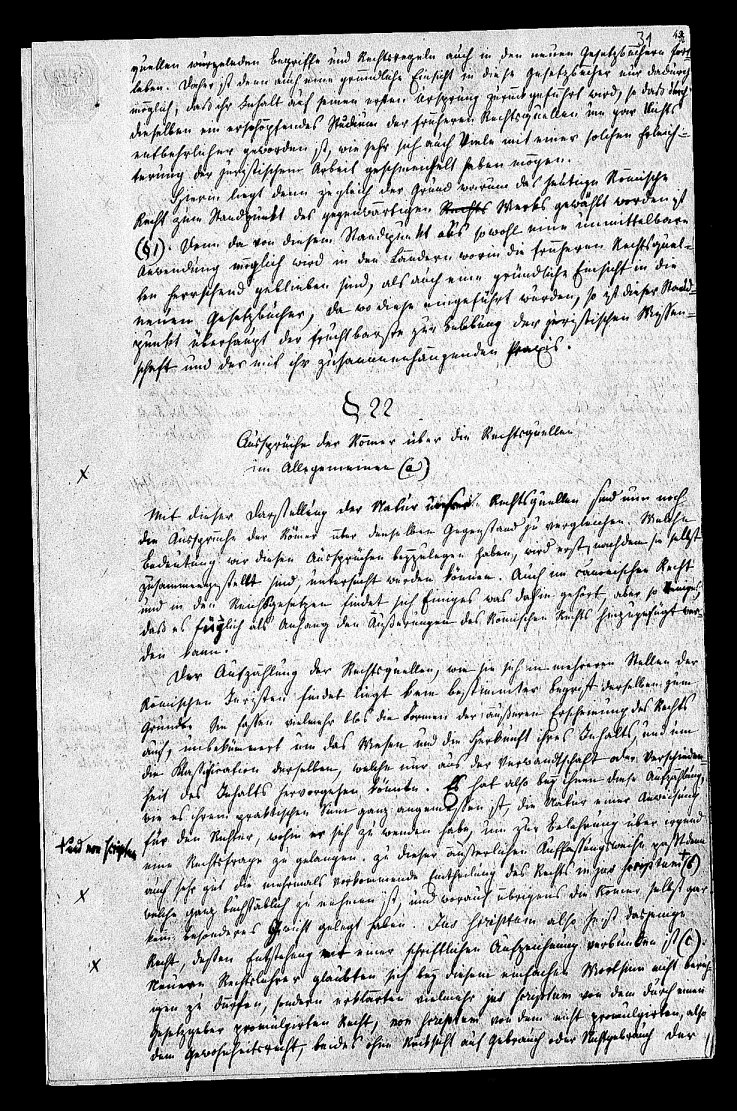 31
quellen wurzelnden Begriffe und Rechtsregeln auch in den neuen Gesetzbüchern fort-
leben. Daher ist denn auch eine gründliche Einsicht in diese Gesetzbücher nur dadurch
möglich, daß ihr Inhalt auf seinen ersten Ursprung zurückgeführt wird, so daß durch
dieselben ein erschöpfendes Studium der früheren Rechtsquellen um gar Nichts
entbehrlicher geworden ist, wie sehr sich auch Viele mit einer solchen Erleich-
terung der juristischen Arbeit geschmeichelt haben mögen.
Hierin liegt denn zugleich der Grund warum das heutige Römische
Recht zum Standpunkt des gegenwärtigen Rechts Werks gewählt worden ist
(§ 1). Denn da von diesem Standpunkt aus sowohl eine unmittelbare
Anwendung möglich wird in den Ländern worin die früheren Rechtsquel-
len herrschend geblieben sind, als auch eine gründliche Einsicht in die
neuen Gesetzbücher, da wo diese eingeführt wurden, so ist dieser Stand-
punkt überhaupt der fruchtbarste zur Belebung der juristischen Wissen-
schaft und der mit ihr zusammenhängenden Praxis.
§ 22
Aussprüche der Römer über die Rechtsquellen
im Allgemeinen (a)
Mit dieser Darstellung der Natur unsrer Rechtsquellen sind nun noch
die Aussprüche der Römer über denselben Gegenstand zu vergleichen. Welche
Bedeutung wir diesen Aussprüchen beyzulegen haben, wird erst, nachdem sie selbst
zusammengestellt sind, untersucht werden können. Auch im canonischen Recht
und in den Reichsgesetzen findet sich Einiges was dahin gehört, aber so Weniges,
daß es füglich als Anhang den Äußerungen des Römischen Rechts hinzugefügt wer-
den kann.
Der Aufzählung der Rechtsquellen, wie sie sich in mehreren Stellen der
Römischen Juristen findet liegt kein bestimmter Begriff derselben zum
Grunde. Sie fassen vielmehr blos die Formen der äußeren Erscheinung des Rechts
auf, unbekümmert um das Wesen und die Herkunft ihres Inhalts, und um
die Klassification derselben, welche nur aus der Verwandtschaft oder Verschieden-
heit des Inhalts hervorgehen könnte. Es hat also bey ihnen diese Aufzählung,
wie es ihrem praktischen Sinn ganz angemessen ist, die Natur einer Anweisung
für den Richter, wohin er sich zu wenden habe, um zur Belehrung über irgend
eine Rechtsfrage zu gelangen. Zu dieser äußerlichen Auffassungsweise paßt denn
auch sehr gut die mehrmals vorkommende Eintheilung des Rechts in jus scriptum (b)
und non scriptum
welche ganz buchstäblich zu nehmen ist, und worauf übrigens die Römer selbst gar
kein besonderes Gewicht gelegt haben. Jus scriptum also heißt dasjenige
Recht, dessen Entstehung mit einer schriftlichen Aufzeichnung verbunden ist (c).
Neuere Rechtslehrer glaubten sich bey diesem einfachen Wortsinn nicht beruhi-
gen zu dürfen, sondern erklärten vielmehr jus scriptum von dem durch einen
Gesetzgeber promulgirten Recht, non scriptum von dem nicht promulgirten, also
dem Gewohnheitsrecht, beides ohne Rücksicht auf Gebrauch oder Nichtgebrauch der